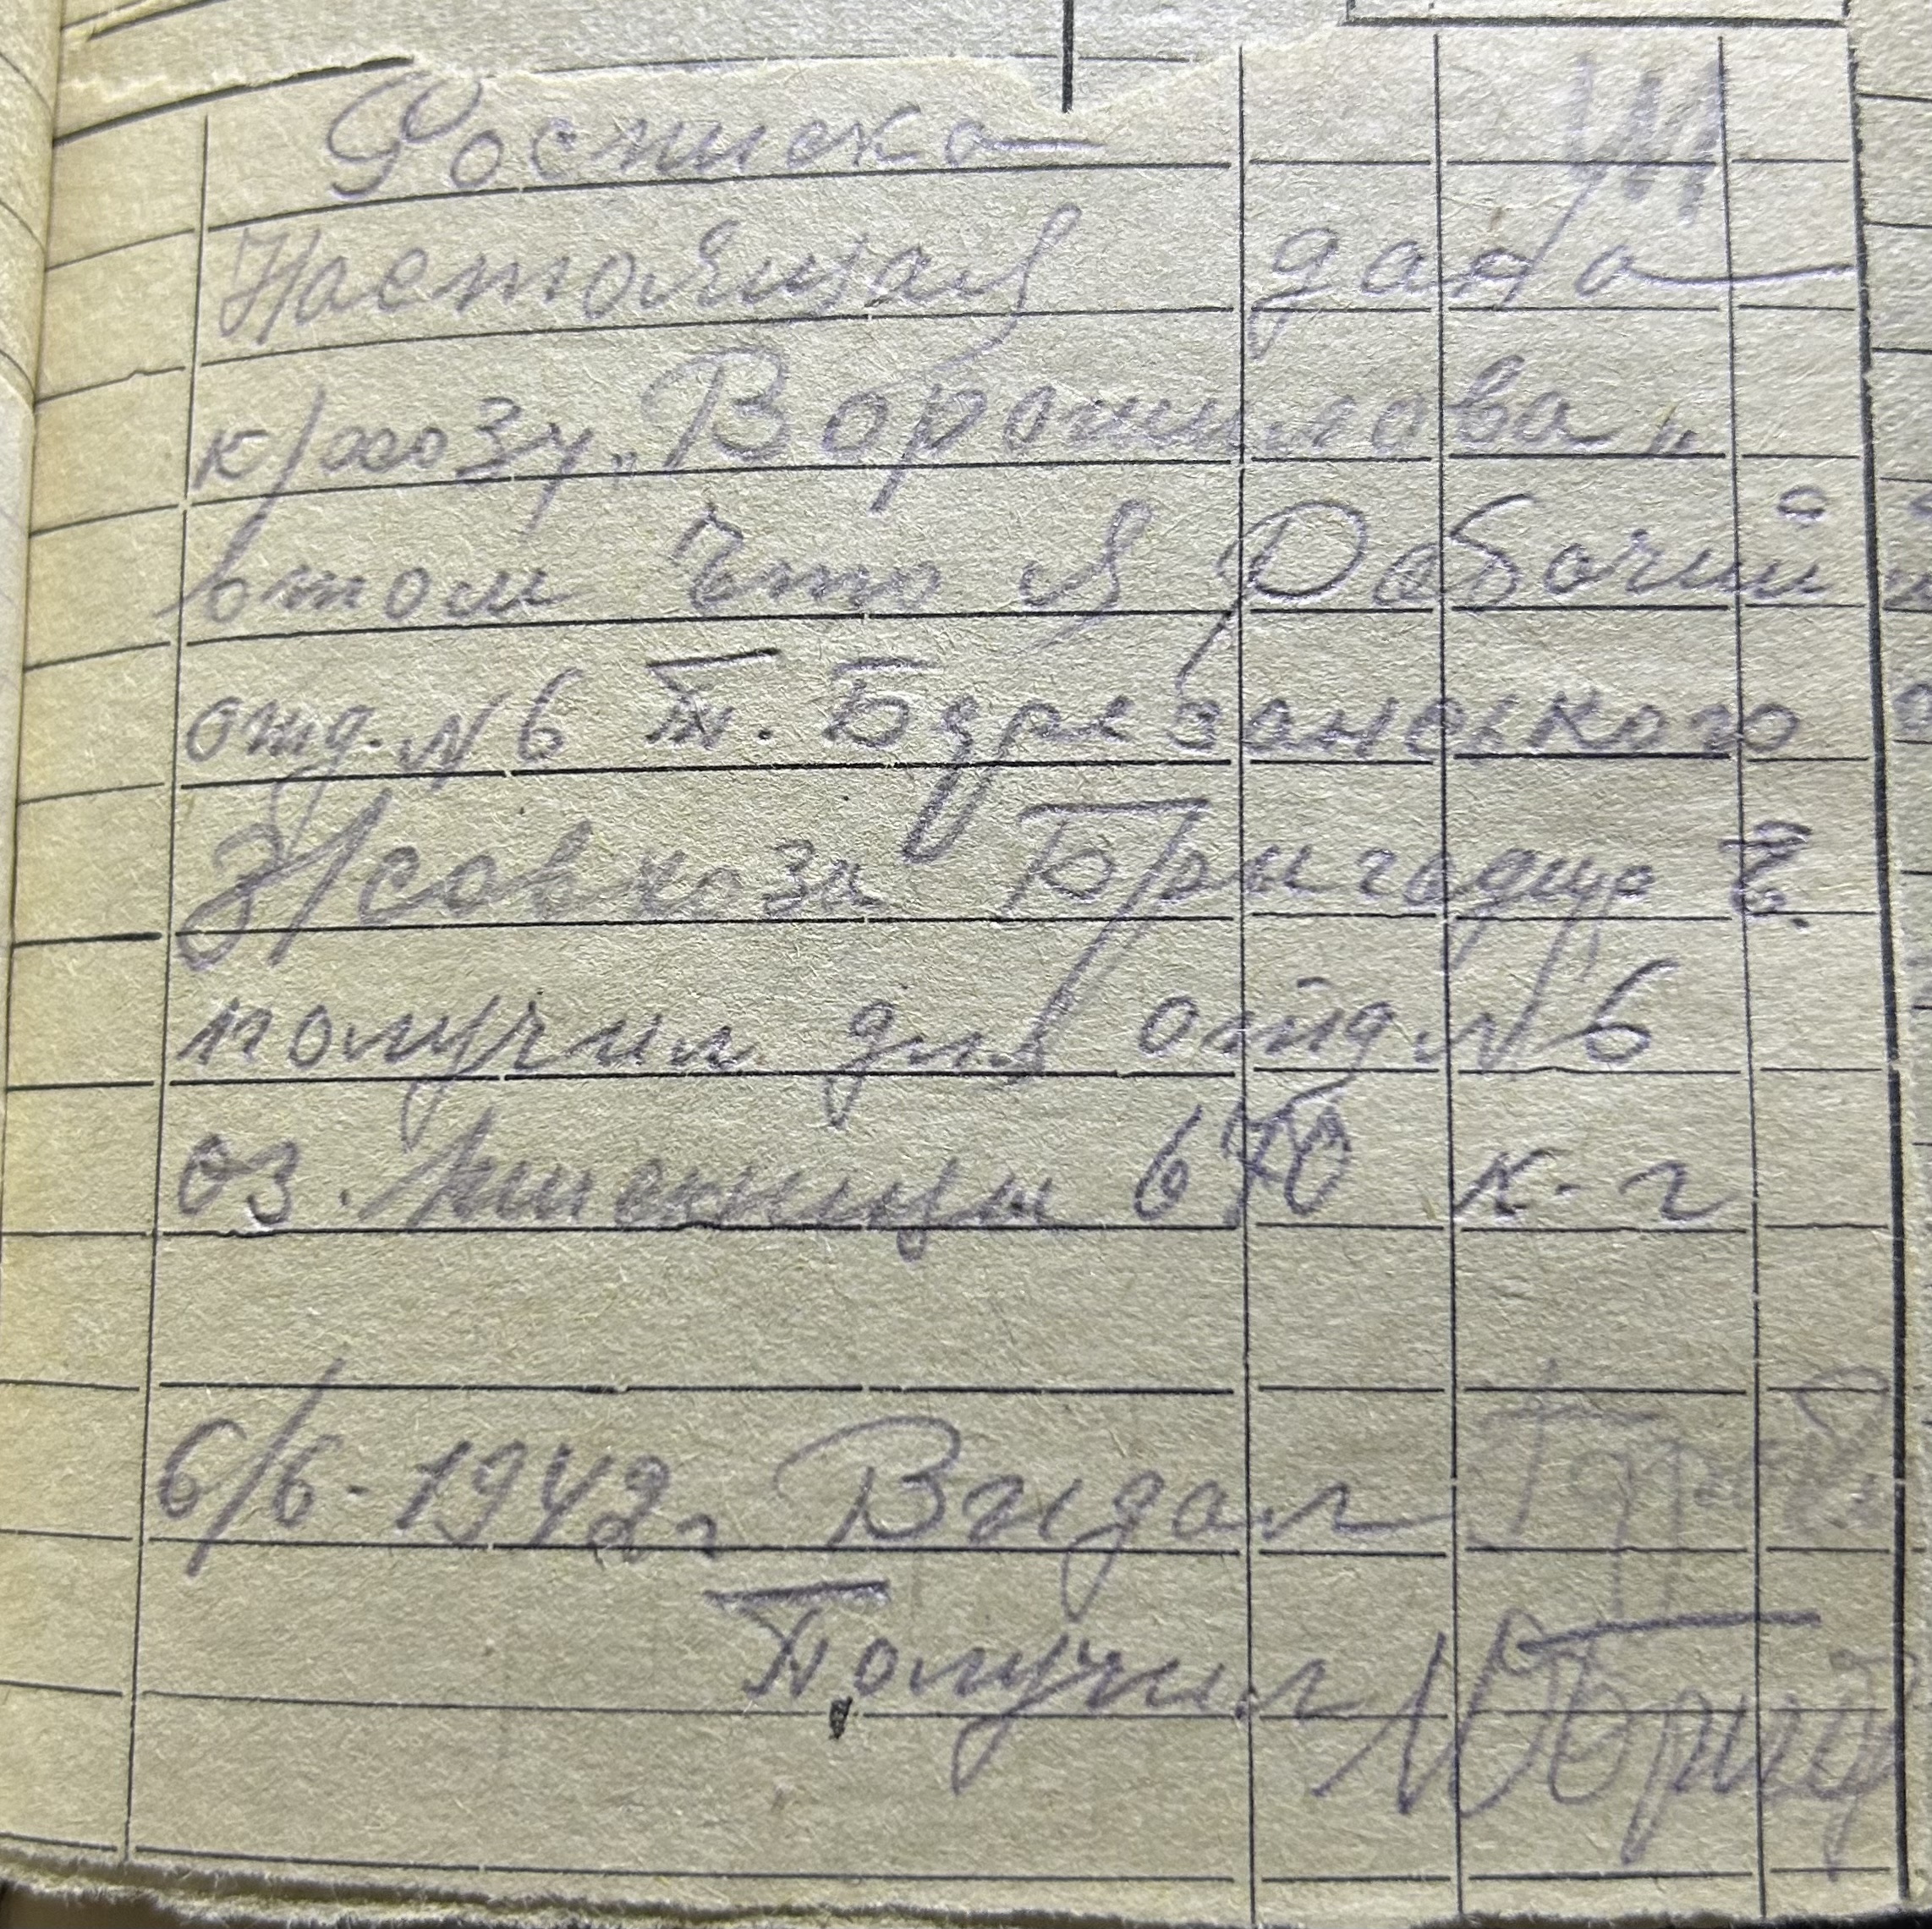 Росписка
Настоящая дана
к/хозу „Ворошилова„
втом что я Рабочий
отд. N 6 П.
З/совхоза Бригадир
получил для отд. N 6
оз. пшеницы 670 к-г
6/6-1942 г Выдал
Получил